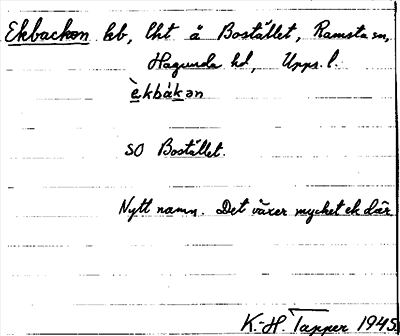 Ekbacken bb, lht å Bostället, Ramsta sn,
Hagunda hd, Upps. l.
èkbákən
SO Bostället.
Nytt namn. Det växer mycket ek där.
K.-H. Tapper 1945.